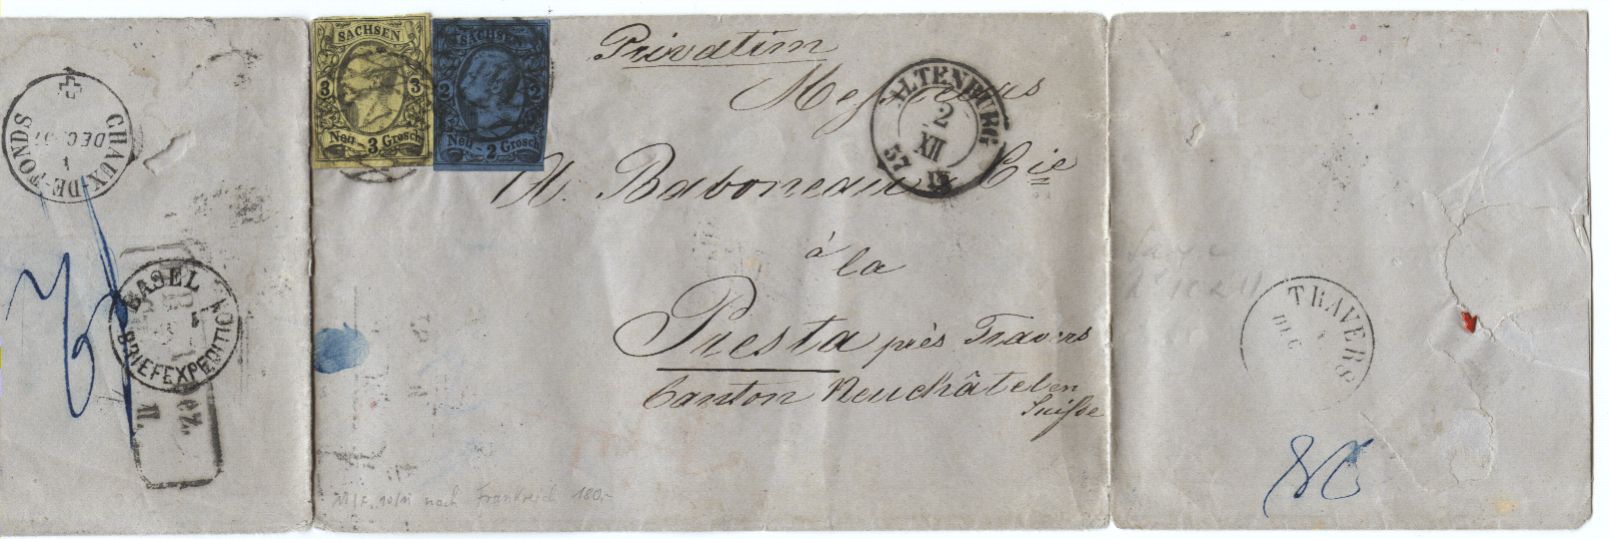 CHAUX-DE-FONDS
DEC. 57
BASEL
BRIEFEXPEDITION
ez.
II.
SACHSEN
3 3
Neu - 3 Grosch
SACHSEN
2 2
Neu - 2 Grosch
Privatim
Messieurs
ALTENBURG
2
XII
57
A. Baboneau & Cie
à la
Presta près Travers
Canton Neuchâtel en
Suisse
nach Frankreich 180,-
TRAVERS
DEC